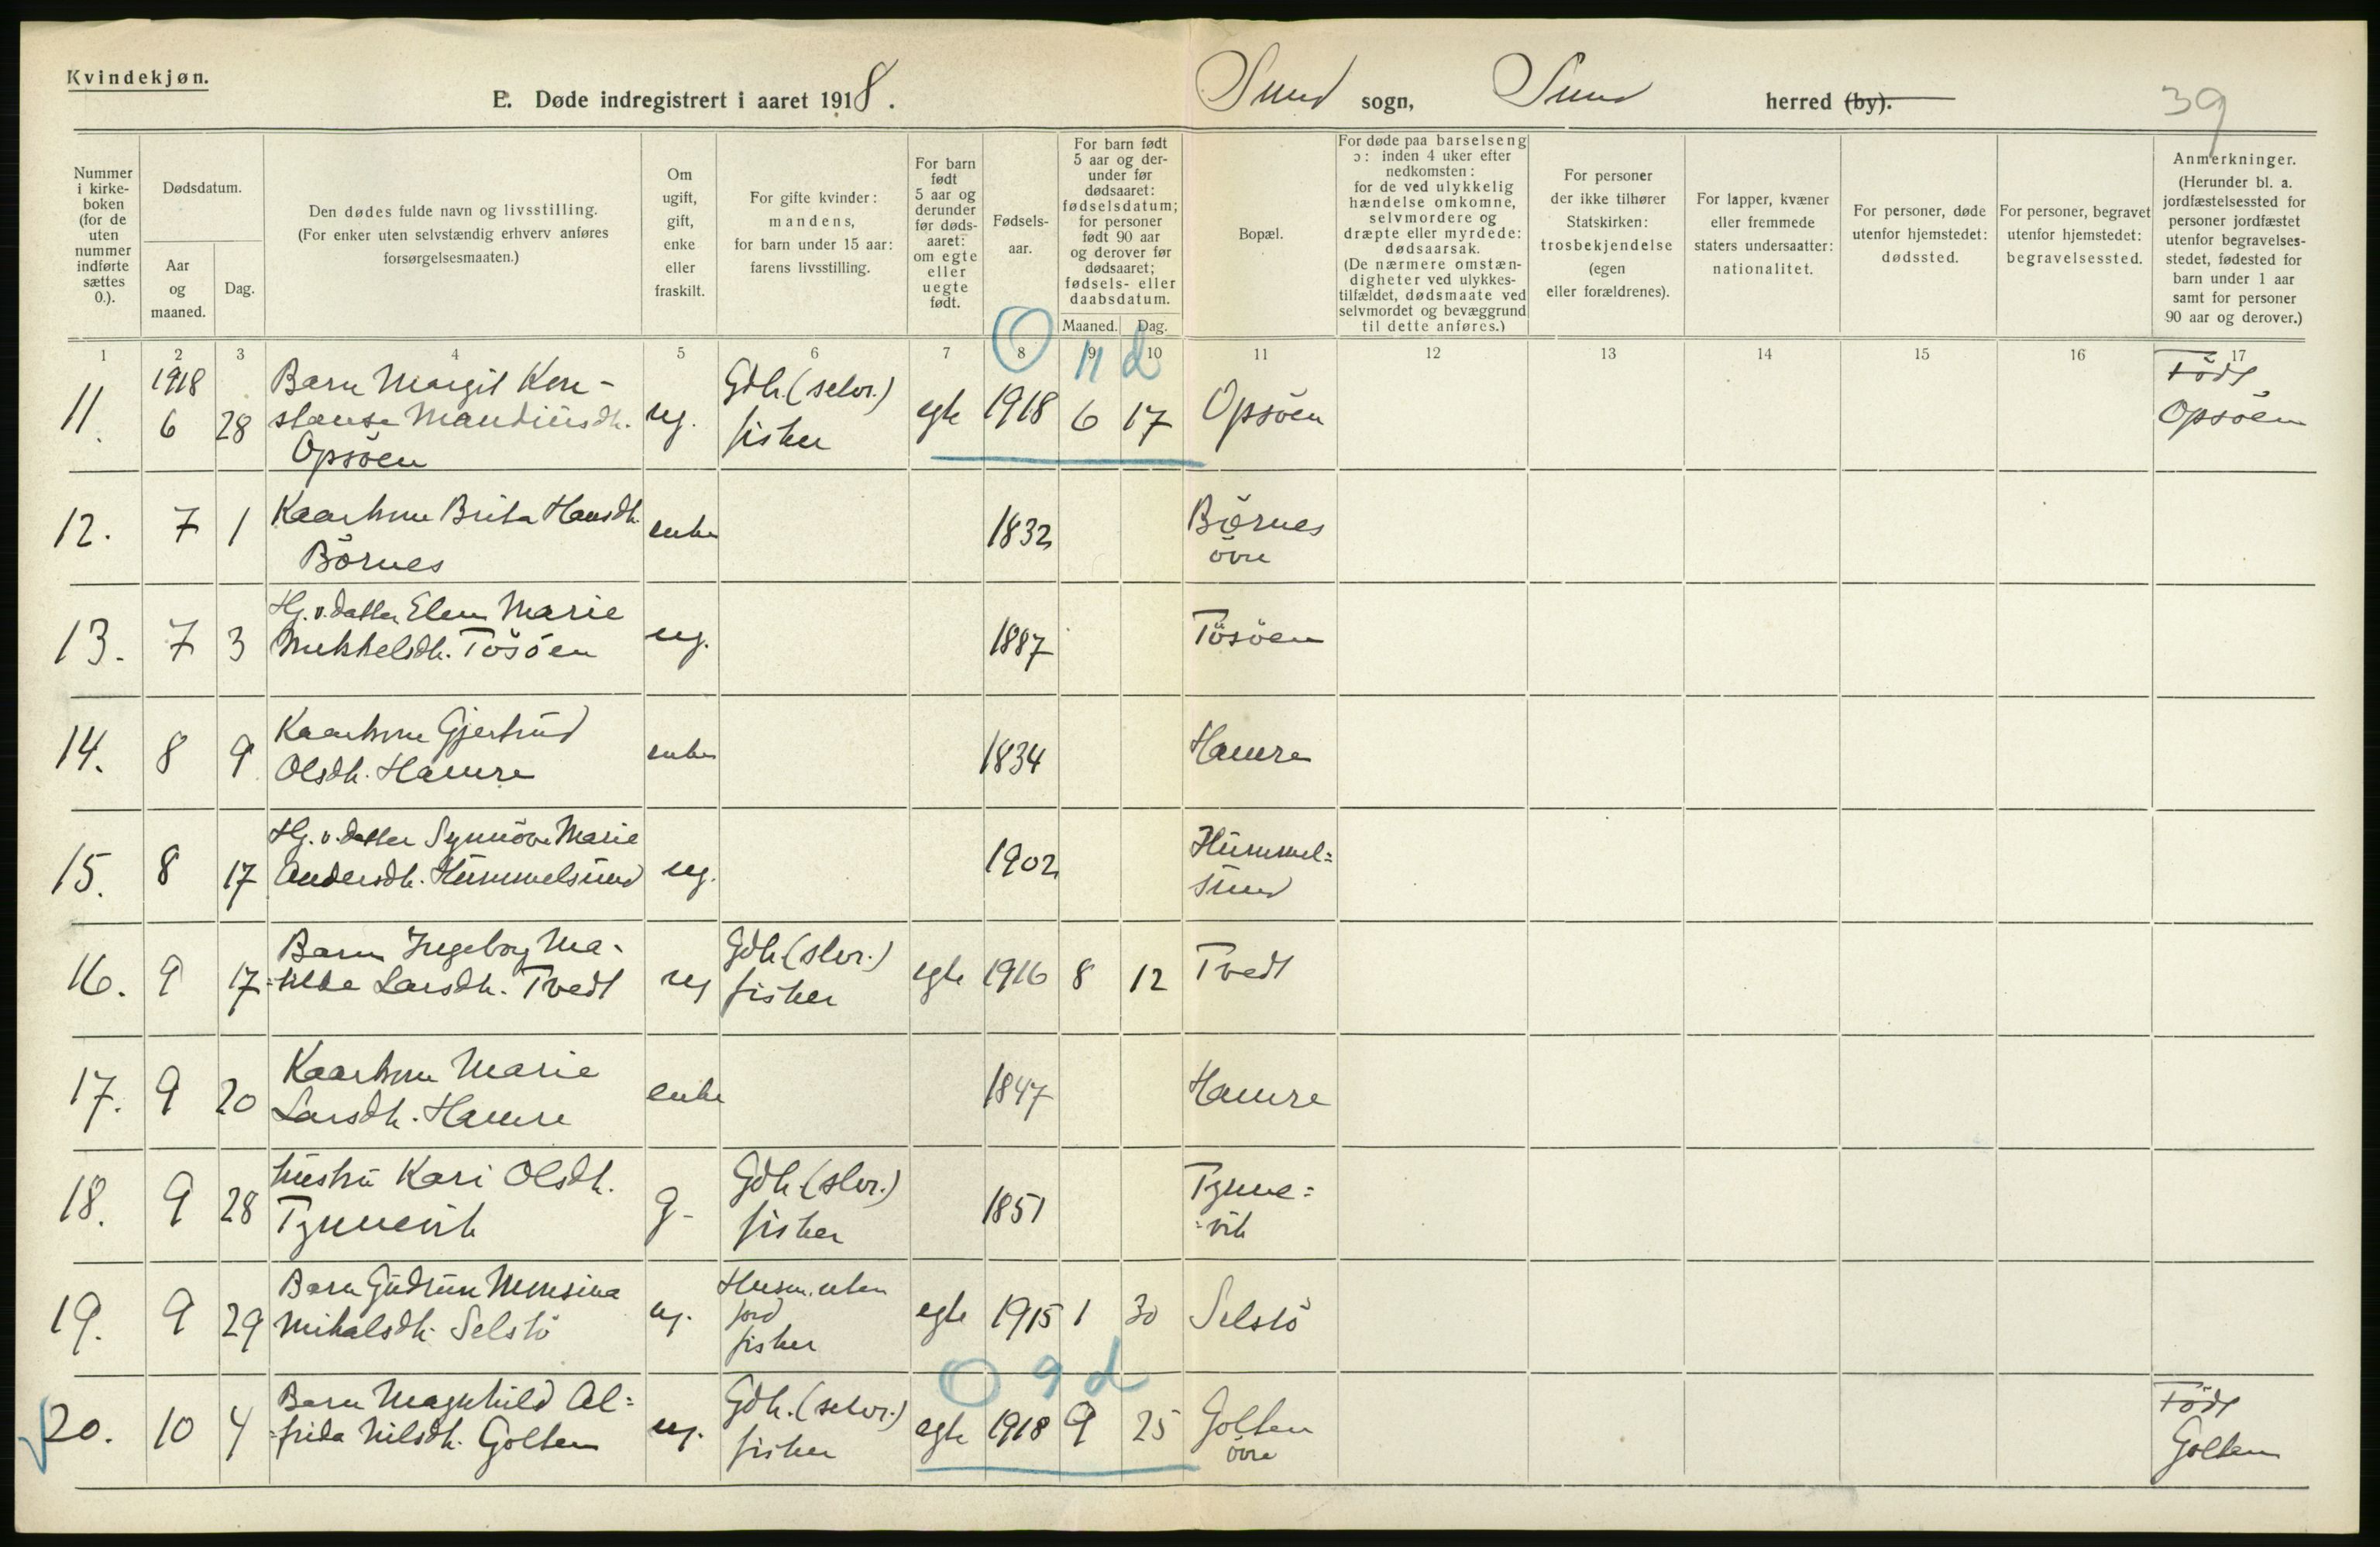 Kvindekjøn.
E. Døde indregistrert i aaret 1918.
Sund sogn, Sund herred (by).
39
Nummer i kirke-boken (for de uten nummer indførte sættes 0.).
Dødsdatum.
Aar og maaned.
Dag.
Den dødes fulde navn og livsstilling.
(For enker uten selvstændig erhverv anføres forsørgelsesmaaten.)
Om ugift, gift, enke eller fraskilt.
For gifte kvinder: mandens, for barn under 15 aar: farens livsstilling.
For barn født 5 aar og derunder før døds-aaret: om egte eller uegte født.
Fødsels-aar.
For barn født 5 aar og der-under før dødsaaret: fødselsdatum; for personer født 90 aar og derover før dødsaaret; fødsels- eller daabsdatum.
Maaned.
Dag.
Bopæl.
For døde paa barselseng ɔ: inden 4 uker efter nedkomsten: for de ved ulykkelig hændelse omkomne, selvmordere og dræpte eller myrdede: dødsaarsak.
(De nærmere omstæn-digheter ved ulykkes-tilfældet, dødsmaate ved selvmordet og bevæggrund til dette anføres.)
For personer der ikke tilhører Statskirken: trosbekjendelse (egen eller forældrenes).
For lapper, kvæner eller fremmede staters undersaatter: nationalitet.
For personer, døde utenfor hjemstedet: dødssted.
For personer, begravet utenfor hjemstedet: begravelsessted.
Anmerkninger.
(Herunder bl. a. jordfæstelsessted for personer jordfæstet utenfor begravelses-stedet, fødested for barn under 1 aar samt for personer 90 aar og derover.)
1 2 3 4 5 6 7 8 9 10 11 12 13 14 15 16 17
0 11 d
11. 1918 6 28 Barn Margit Kon-stanse Mandiusdtr. Opsöen ug. Gdb. (selv.) fisker egte 1918 6 17 Opsöen Födt Opsöen
12. 7 1 Kaarkone Brita Hansdtr. Börnes enke 1832 Börnes övre
13. 7 3 Hj. v. datter Elen Marie Mikkelsdtr. Tösöen ug. 1887 Tösöen
14. 8 9 Kaarkone Gjertrud Olsdtr. Hamre enke 1834 Hamre
15. 8 17 Hj. v. datter Synnöve Marie Andersdtr. Hummelsund ug. 1902 Hummel=sund
16. 9 17 Barn Ingeborg Ma-=tilde Larsdtr. Tvedt ug Gdb (slv.) fisker egte 1916 8 12 Tvedt
17. 9 20 Kaarkone Marie Larsdtr. Hamre enke 1847 Hamre
18. 9 28 hustru Kari Olsdtr. Tynnevik g- Gdb (slv.) fisker 1851 Tynne=-vik
19. 9 29 Barn Gudrun Monsina Mikalsdtr. Selstö ug. Husm. uten jord fisker egte 1915 1 30 Selstö
0 9 d
20. 10 4 Barn Magnhild Al=-frida Nilsdtr. Golten ug. Gdb. (selv.) fisker egte 1918 9 25 Golten övre Födt Golten